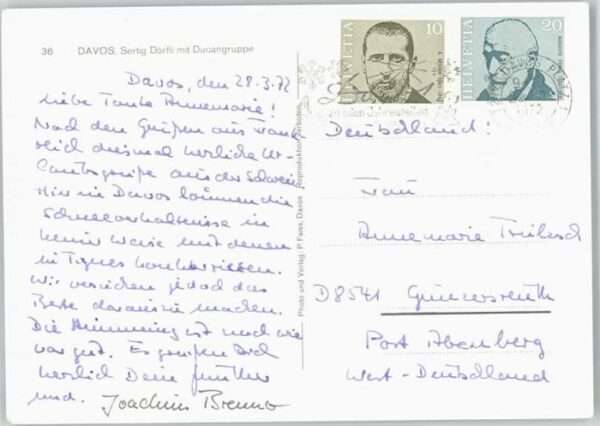 36 DAVOS. Sertig Dörfli mit Ducangruppe
Davos, den 28.3.72
Liebe Tante Annemarie!
Nach den Grüßen aus Frank-
reich diesmal herzliche Ur-
laubsgrüße aus der Schweiz.
Hier in Davos können die
Schneeverhältnisse in
keiner Weise mit denen
in Tignes konkurrieren.
Wir versuchen jedoch das
Beste daraus zu machen.
Die Stimmung ist nach wie
vor gut. Es grüßen Dich
herzlich Deine
und. Joachim
Photo und Verlag: P. Faiss, Davos Reproduktion verboten
HELVETIA 10
HELVETIA 20
Deutschland!
Frau
Annemarie
D8541
Post Abenberg
West-Deutschland